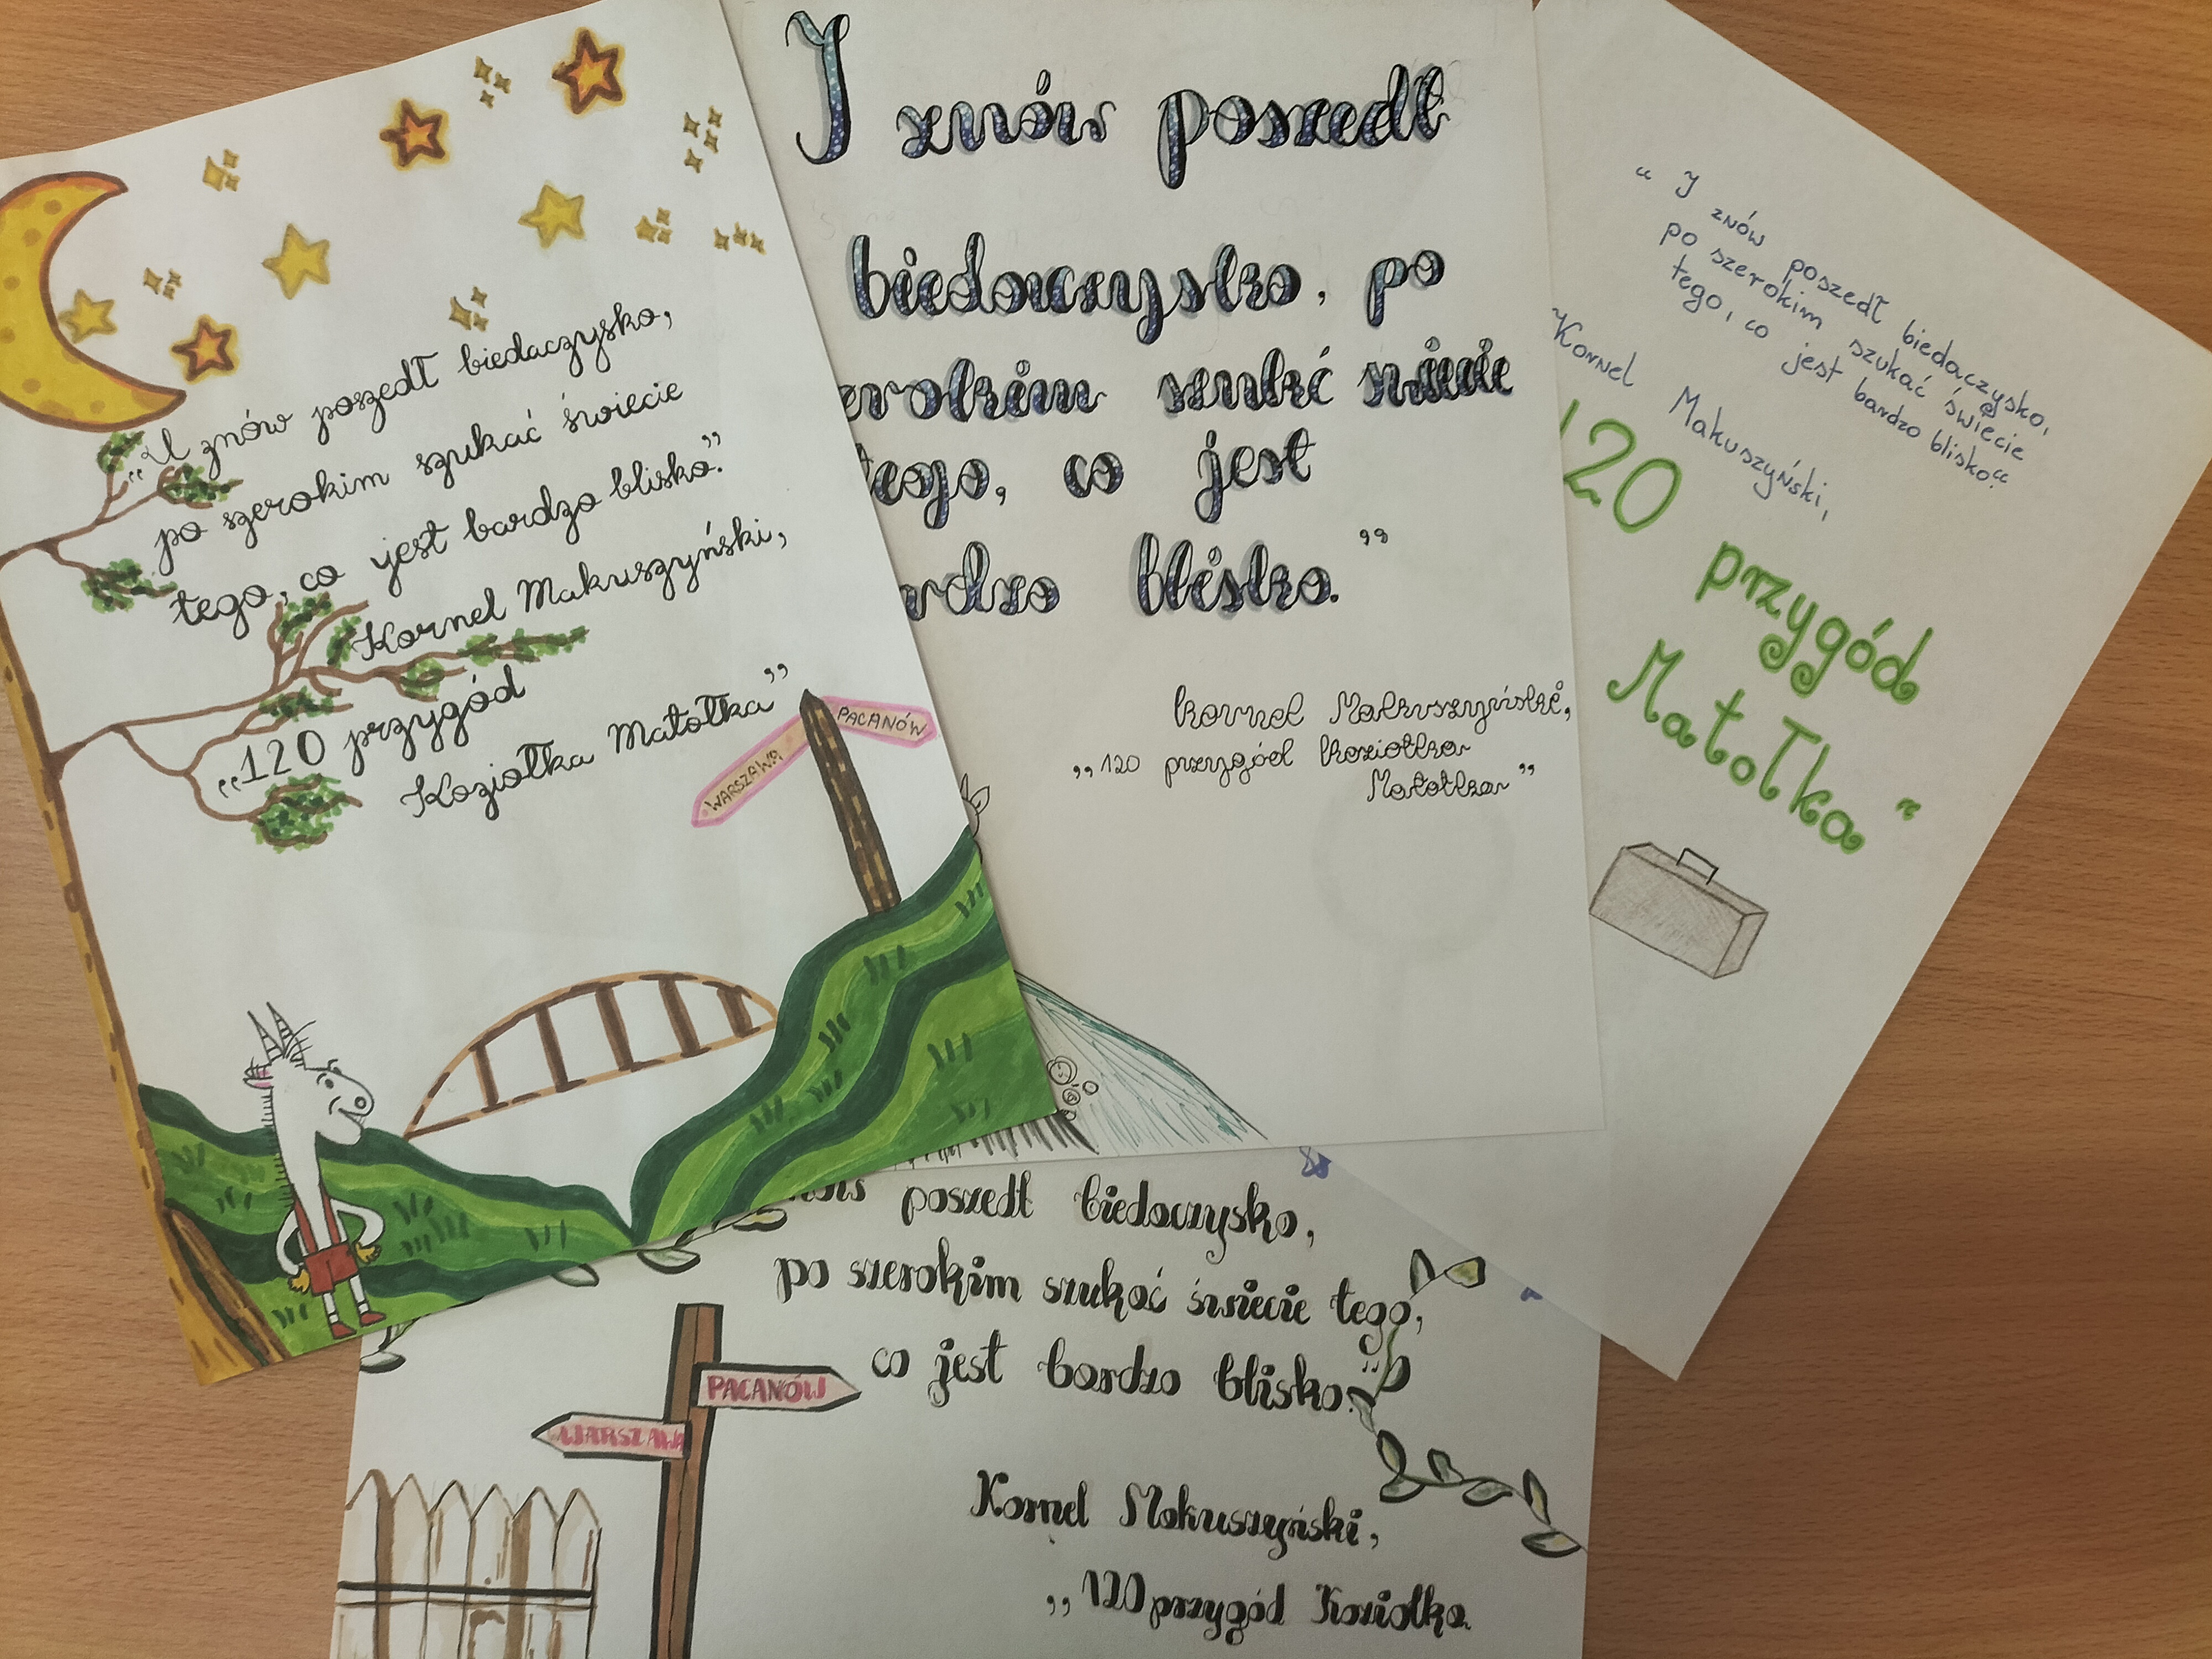 „I znów poszedł biedaczysko,
po szerokim szukać świecie
tego, co jest bardzo blisko.”
Kornel Makuszyński,
„120 przygód
Koziołka Matołka”
WARSZAWA
PACANÓW
I znów poszedł
biedaczysko, po
erokim szukć świecie
tego, co jest
rdzo blisko.”
Kornel Makuszyński,
„120 przygód Koziołka
Matołka”
“I znów poszedł biedaczysko,
po szerokim szukać świecie
tego, co jest bardzo blisko“
Kornel Makuszyński,
120 przygód
Matołka“
poszedł biedaczysko,
po szerokim szukać świecie tego,
co jest bardzo blisko.”
PACANÓW
WARSZAWA
Kornel Makuszyński,
„120 przygód Koziołka